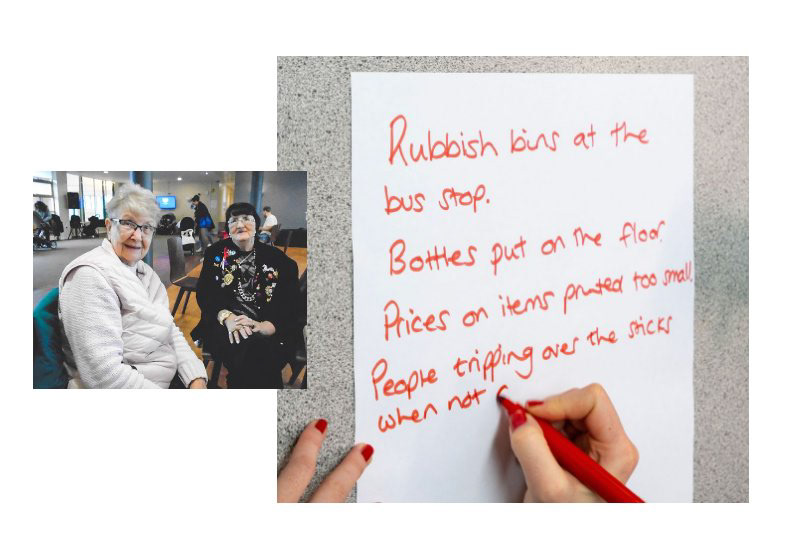 Rubbish bins at the
bus stop.
Bottles put on the floor.
Prices on items printed too small.
People tripping over the sticks
when not